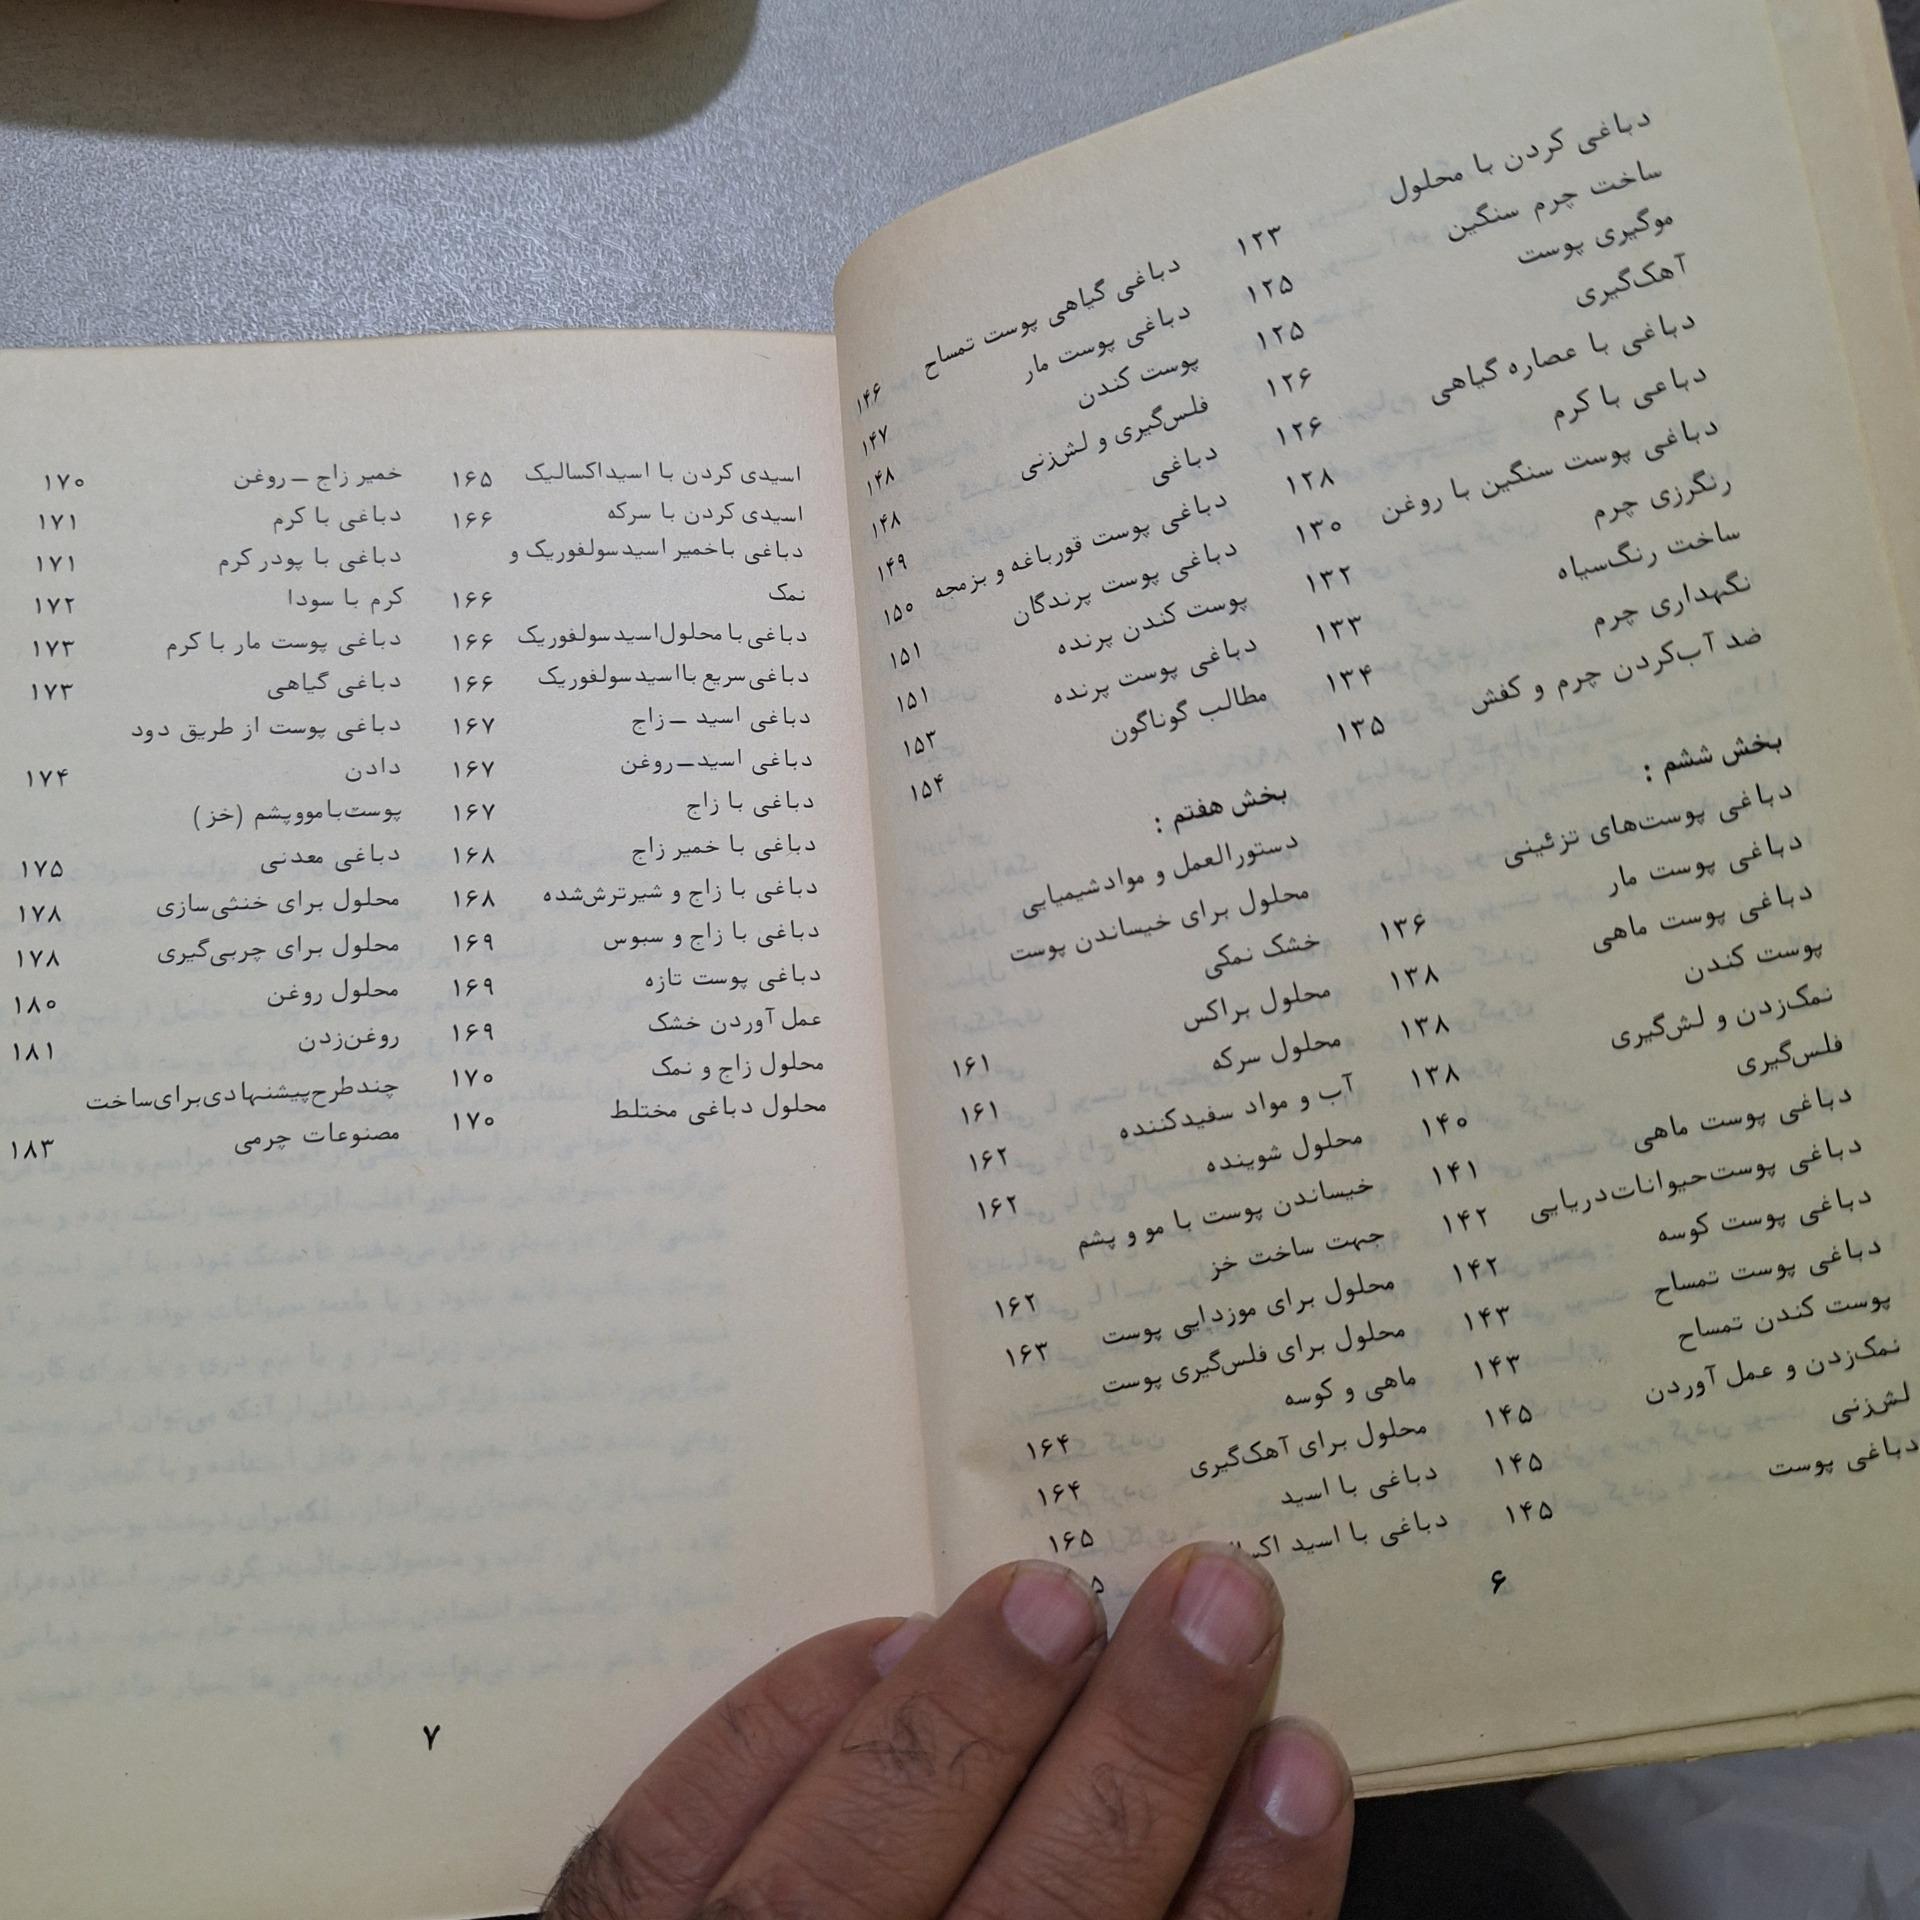 دباغی کردن با محلول ۱۲۳
ساخت چرم سنگین ۱۲۵
موگیری پوست ۱۲۵
آهک‌گیری ۱۲۶
دباغی با عصاره گیاهی ۱۲۶
دباعی با کرم ۱۲۸
دباغی پوست سنگین با روغن ۱۳۰
رنگرزی چرم ۱۳۲
ساخت رنگ‌سیاه ۱۳۳
نگهداری چرم ۱۳۴
ضد آب‌کردن چرم و کفش ۱۳۵
بخش ششم :
دباغی پوست‌های تزئینی ۱۳۶
دباغی پوست مار ۱۳۸
دباغی پوست ماهی ۱۳۸
پوست کندن ۱۳۸
نمک‌زدن و لش‌گیری ۱۴۰
فلس‌گیری ۱۴۱
دباغی پوست ماهی ۱۴۲
دباغی پوست‌حیوانات‌دریایی ۱۴۲
دباغی پوست کوسه ۱۴۳
دباغی پوست تمساح ۱۴۳
پوست کندن تمساح ۱۴۵
نمک‌زدن و عمل آوردن ۱۴۵
لش‌زنی ۱۴۵
دباغی پوست
دباغی گیاهی پوست تمساح ۱۴۶
دباغی پوست مار ۱۴۷
پوست کندن ۱۴۸
فلس‌گیری و لش‌زنی ۱۴۸
دباغی ۱۴۹
دباغی پوست قورباغه و بزمجه ۱۵۰
دباغی پوست پرندگان ۱۵۱
پوست کندن پرنده ۱۵۱
دباغی پوست پرنده ۱۵۳
مطالب گوناگون ۱۵۴
بخش هفتم :
دستورالعمل و موادشیمیایی
محلول برای خیساندن پوست
خشک نمکی ۱۶۱
محلول براکس ۱۶۱
محلول سرکه ۱۶۲
آب و مواد سفیدکننده ۱۶۲
محلول شوینده
خیساندن پوست با مو و پشم
جهت ساخت خز ۱۶۲
محلول برای موزدایی پوست ۱۶۳
محلول برای فلس‌گیری پوست
ماهی و کوسه ۱۶۴
محلول برای آهک‌گیری ۱۶۴
دباغی با اسید ۱۶۵
دباغی با اسید
۶
اسیدی کردن با اسیداکسالیک ۱۶۵
اسیدی کردن با سرکه ۱۶۶
دباغی باخمیر اسیدسولفوریک و
نمک ۱۶۶
دباغی با محلول‌اسیدسولفوریک ۱۶۶
دباغی‌سریع بااسیدسولفوریک ۱۶۶
دباغی اسید ــ زاج ۱۶۷
دباغی اسید ــ روغن ۱۶۷
دباغی با زاج ۱۶۷
دباغی با خمیر زاج ۱۶۸
دباغی با زاج و شیرترش‌شده ۱۶۸
دباغی با زاج و سبوس ۱۶۹
دباغی پوست تازه ۱۶۹
عمل آوردن خشک ۱۶۹
محلول زاج و نمک ۱۷۰
محلول دباغی مختلط ۱۷۰
خمیر زاج ــ روغن ۱۷۰
دباغی با کرم ۱۷۱
دباغی با پودر کرم ۱۷۱
کرم با سودا ۱۷۲
دباغی پوست مار با کرم ۱۷۳
دباغی گیاهی ۱۷۳
دباغی پوست از طریق دود
دادن ۱۷۴
پوست‌باموو‌پشم (خز)
دباغی معدنی ۱۷۵
محلول برای خنثی‌سازی ۱۷۸
محلول برای چربی‌گیری ۱۷۸
محلول روغن ۱۸۰
روغن‌زدن ۱۸۱
چندطرح‌پیشنهادی‌برای‌ساخت
مصنوعات چرمی ۱۸۳
۷